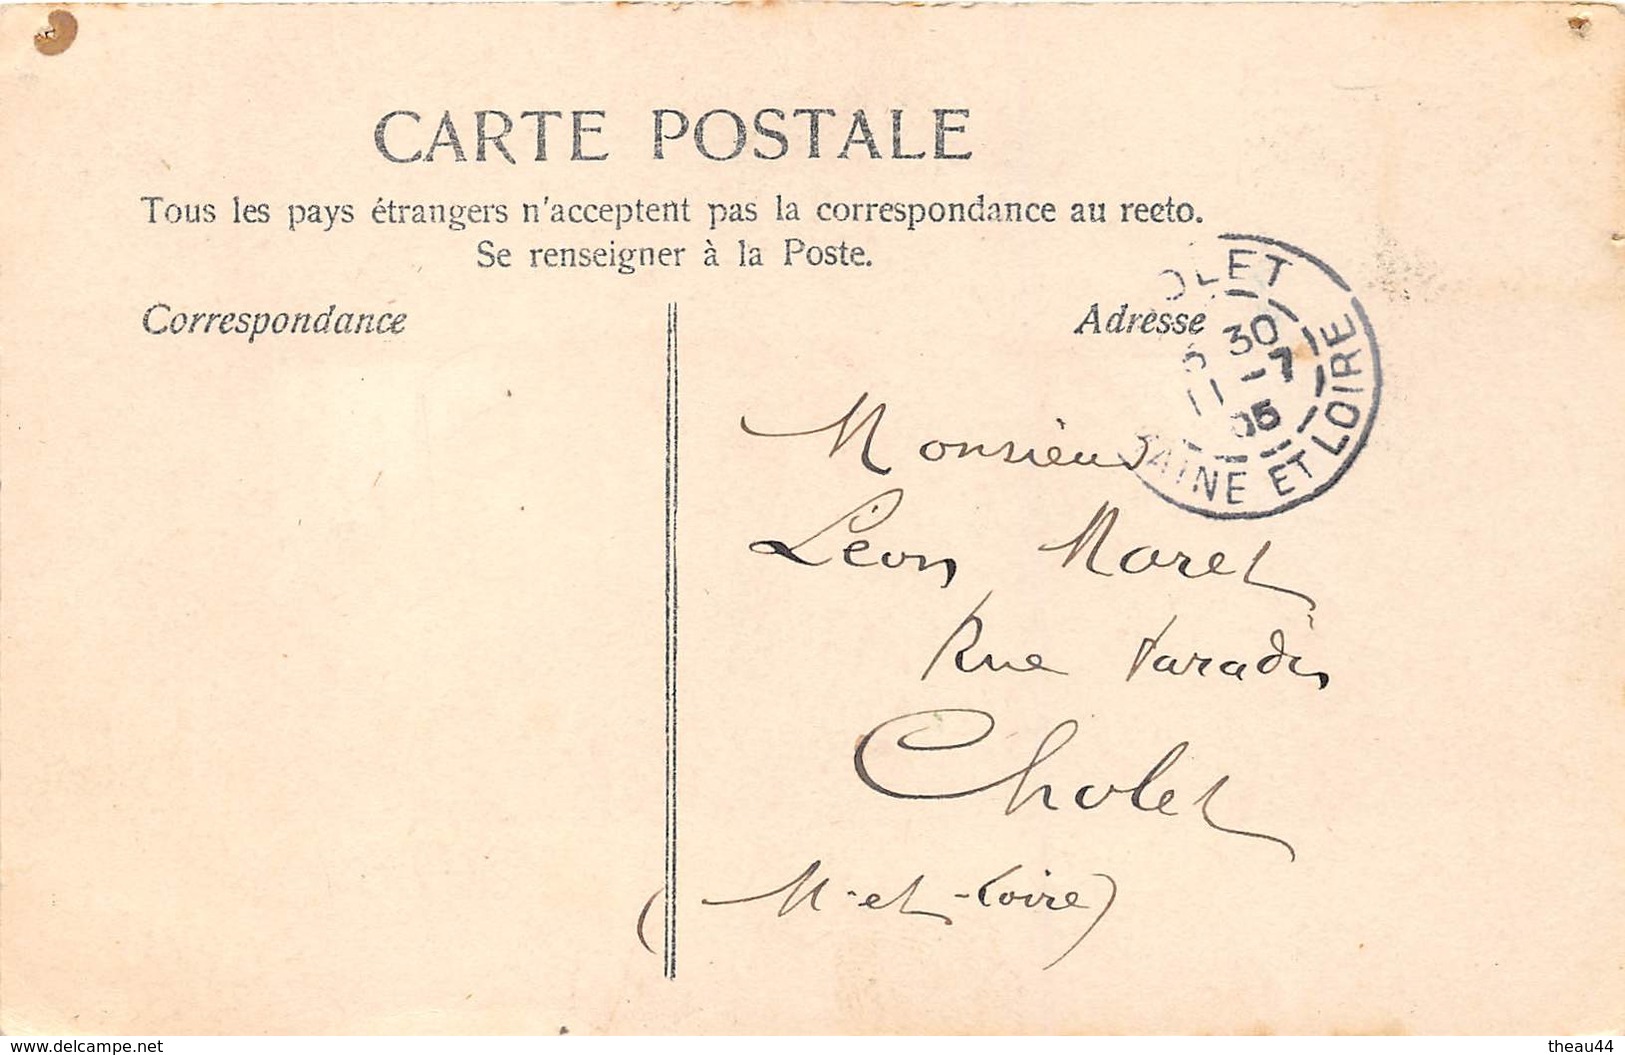 CARTE POSTALE
Tous les pays étrangers n'acceptent pas la correspondance au recto.
Se renseigner à la Poste.
Correspondance
Adresse
OLET
30
11 - 7
05
MAINE ET LOIRE
Monsieur
Léon Moret
Rue Paradis
Cholet
(M-et-Loire)
www.delcampe.net
theau44